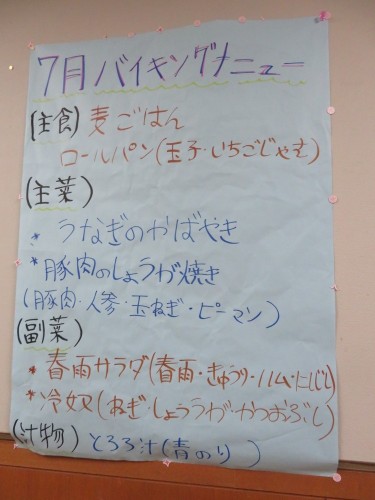 7月バイキングメニュー
(主食)麦ごはん
ロールパン(玉子・いちごじゃむ)
(主菜)
*うなぎのかばやき
*豚肉のしょうが焼き
(豚肉・人参・玉ねぎ・ピーマン)
(副菜)
*春雨サラダ(春雨・きゅうり・ハム・にんじん)
*冷奴(ねぎ・しょうが・かつおぶし)
(汁物)とろろ汁(青のり)